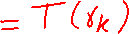 = T(γ_k)